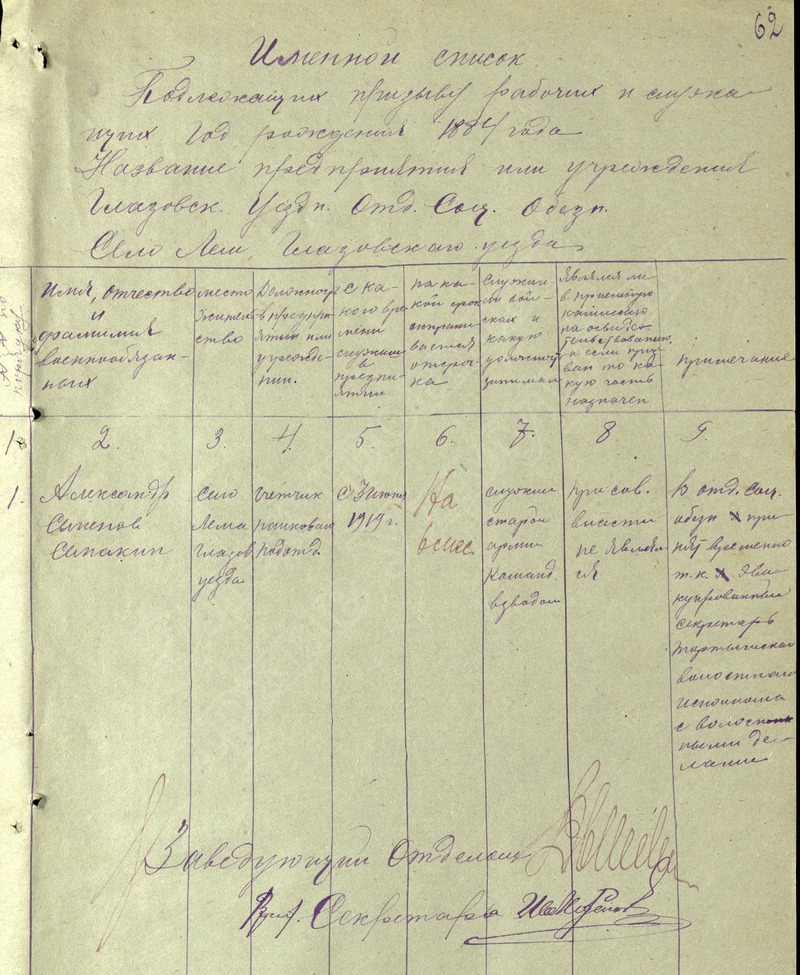 62
Именной список
Подлежащих призыву рабочих и служа-
щих. Год рождения 1884 года
Название предприятия или учреждения
Глазовск. Уездн. Отд. Соц. Обезп.
Село Лем, Глазовского уезда
№№ по порядку
Имя, отчество
и
фамилия
военнообязан-
ных
место
жительс-
ство
Должность
в предпри-
ятии или
учрежде-
нии.
с ка-
кого вре-
мени
служит
в
предпри-
ятии
на ка-
кой срок
испраши-
вается
отсроч-
ка
Служил
ли вой-
сках и
какую
должность
занимал
Являлся ли
в приемную
комиссию
на освиде-
тельствованию,
а если при-
зван то ка-
кую часть
назначен
примечание
1. 2. 3. 4. 5. 6. 7. 8 9.
1.
Александр
Семенов
село
Лема
Глазов.
уезда
счетчик
с 3 июня
1919 г.
На
6 мес.
служил
старой
армии
Команд.
взводом
при сов.
власти
не являл-
ся
В отд. Соц.
обезп при-
нят временно
т.к. Эва-
куированный
секретарь
волостного
исполкома
с волост-
ными де-
лами
Заведующий Отделом
Секретарь